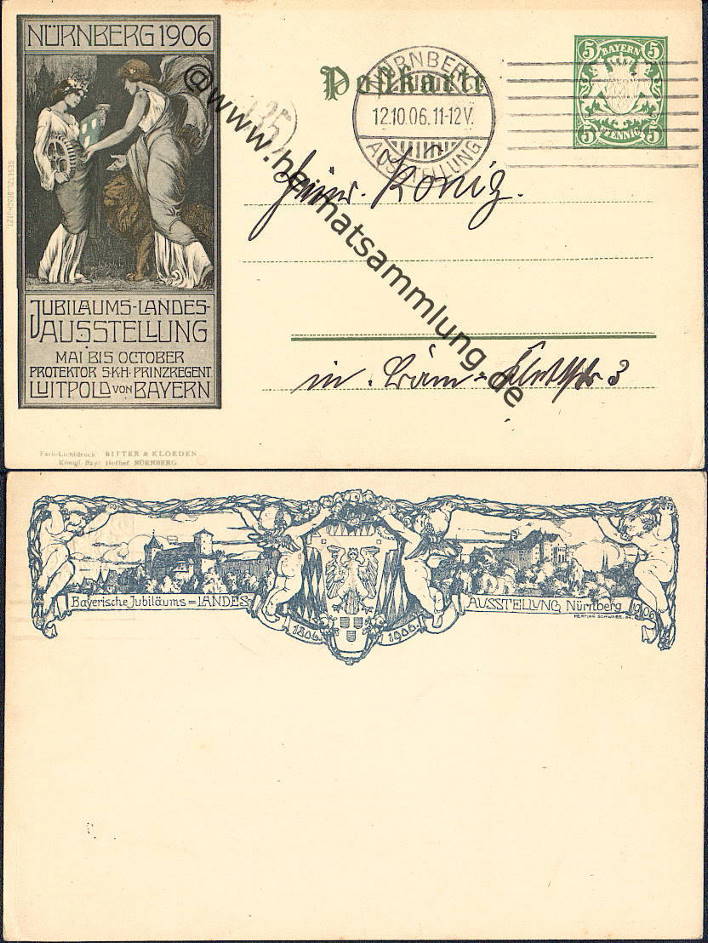 NÜRNBERG 1906
JUBILÄUMS-LANDES-
AUSSTELLUNG
MAI BIS OCTOBER
PROTEKTOR S.K.H. PRINZREGENT
LUITPOLD VON BAYERN
Postkarte
NÜRNBERG
12.10.06.11-12V.
AUSSTELLUNG
5 BAYERN 5
5 PFENNIG 5
König.
in
3
@www.heimatsammlung.de
Farb. Lichtdruck RITTER & KLOEDEN
Königl. Bayr. Hoflief. NÜRNBERG.
Bayerische Jubiläums=LANDES=
AUSSTELLUNG Nürnberg 1906
1806 1906